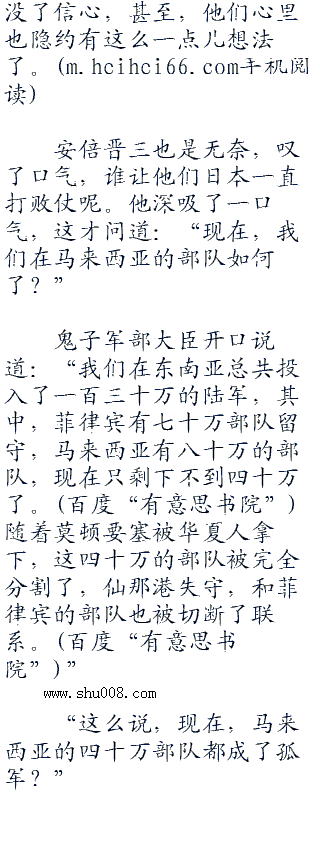 没了信心，甚至，他们心里
也隐约有这么一点儿想法
了。(m.hcihci66.com手机阅
读)
安倍晋三也是无奈，叹
了口气，谁让他们日本一直
打败仗呢。他深吸了一口
气，这才问道：“现在，我
们在马来西亚的部队如何
了？”
鬼子军部大臣开口说
道：“我们在东南亚总共投
入了一百三十万的陆军，其
中，菲律宾有七十万部队留
守，马来西亚有八十万的部
队，现在只剩下不到四十万
了。(百度“有意思书院”)
随着莫顿要塞被华夏人拿
下，这四十万的部队被完全
分割了，仙那港失守，和菲
律宾的部队也被切断了联
系。(百度“有意思书
院”)”
www.shu008.com
“这么说，现在，马来
西亚的四十万部队都成了孤
军？”